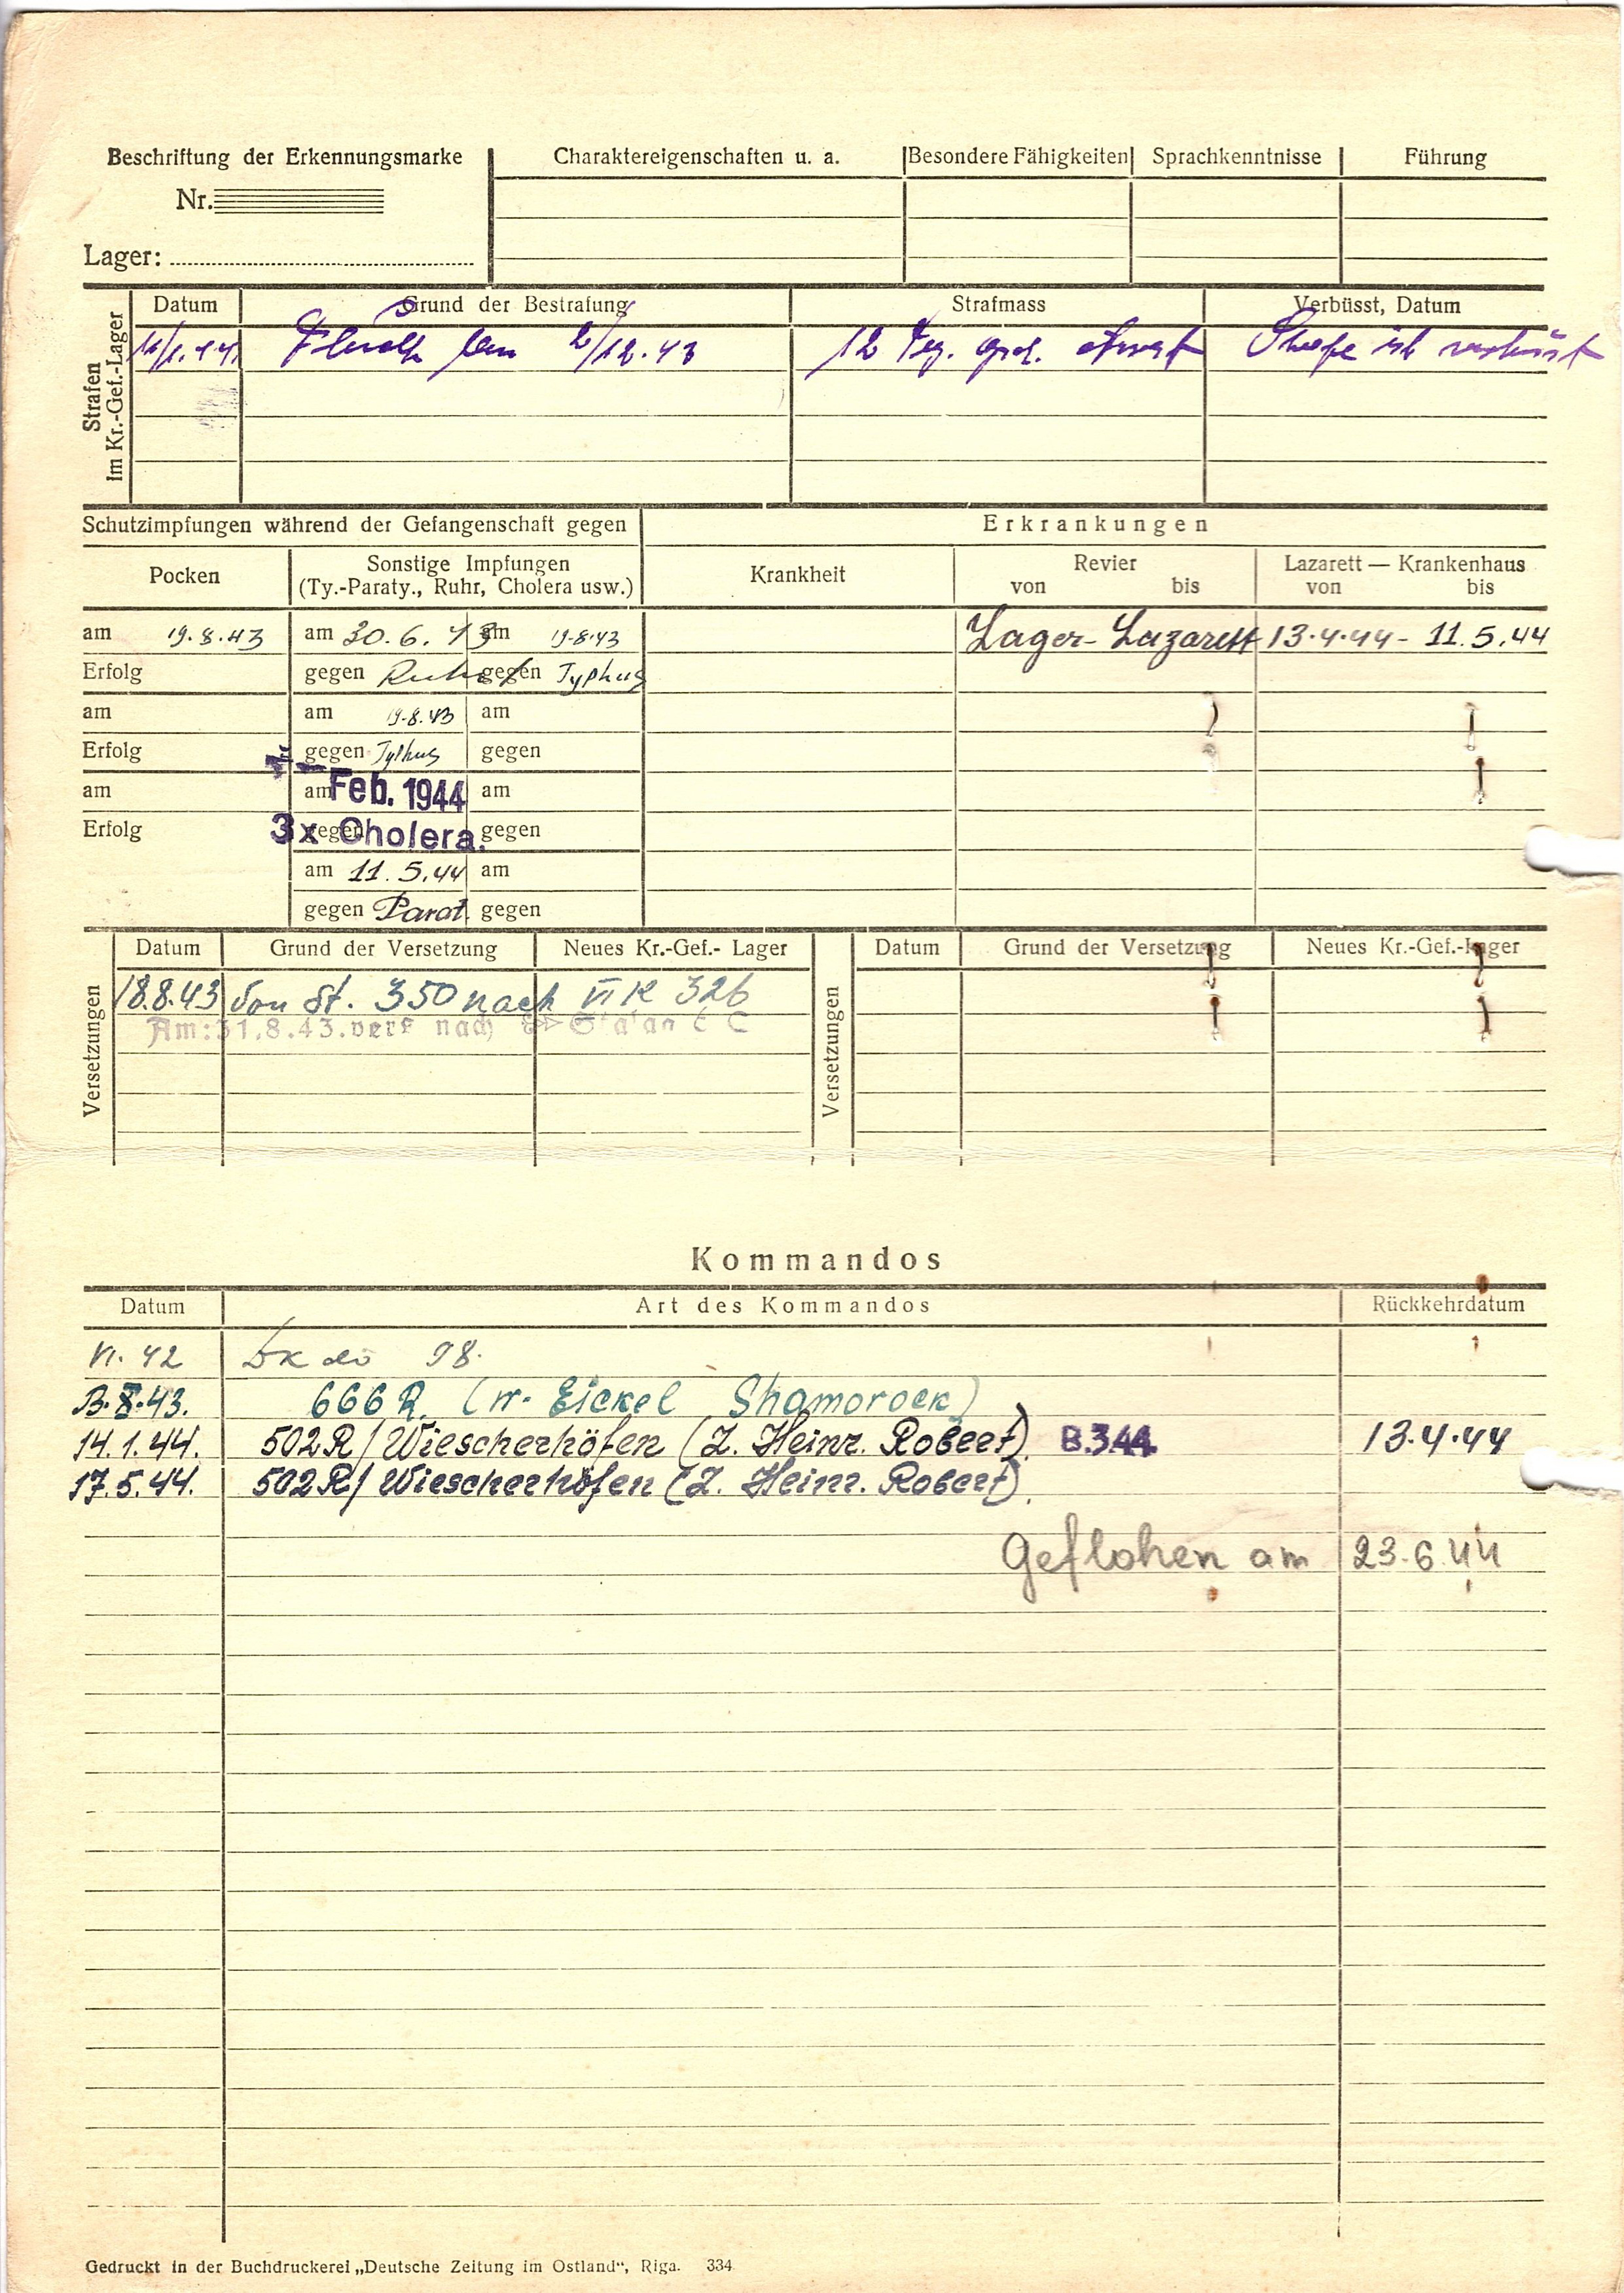 Beschriftung der Erkennungsmarke
Nr.
Lager:
Charaktereigenschaften u. a.
Besondere Fähigkeiten
Sprachkenntnisse
Führung
Strafen
im Kr.-Gef.-Lager
Datum Grund der Bestrafung Strafmass Verbüsst, Datum
2/12.43 12 Arrest Strafe ist verbüsst
Schutzimpfungen während der Gefangenschaft gegen
Erkrankungen
Pocken
Sonstige Impfungen
(Ty.-Paraty., Ruhr, Cholera usw.)
Krankheit
Revier
von bis
Lazarett — Krankenhaus
von bis
am 19.8.43 am 30.6.43 am 19.8.43 Lager-Lazarett 13.4.44 - 11.5.44
Erfolg gegen Ruhr gegen Typhus
am am 19.8.43 am
Erfolg gegen Typhus gegen
am am Feb. 1944 am
Erfolg gegen 3x Cholera. gegen
am 11.5.44 am
gegen Parat. gegen
Versetzungen
Datum Grund der Versetzung Neues Kr.-Gef.- Lager
18.8.43 Von St. 350 nach VI K 326
Am: 31.8.43. vers nach
Versetzungen
Datum Grund der Versetzung Neues Kr.-Gef.-Lager
Kommandos
Datum Art des Kommandos Rückkehrdatum
VI. 42 98.
8.43. 666 R. (W. Eickel Shamorock)
14.1.44. 502 R/ Wiescherhöfen (Z. Heinr. Robert). B.3.44. 13.4.44
17.5.44. 502 R/ Wiescherhöfen (Z. Heinr. Robert).
Geflohen am 23.6.44
Gedruckt in der Buchdruckerei „Deutsche Zeitung im Ostland“, Riga. 334